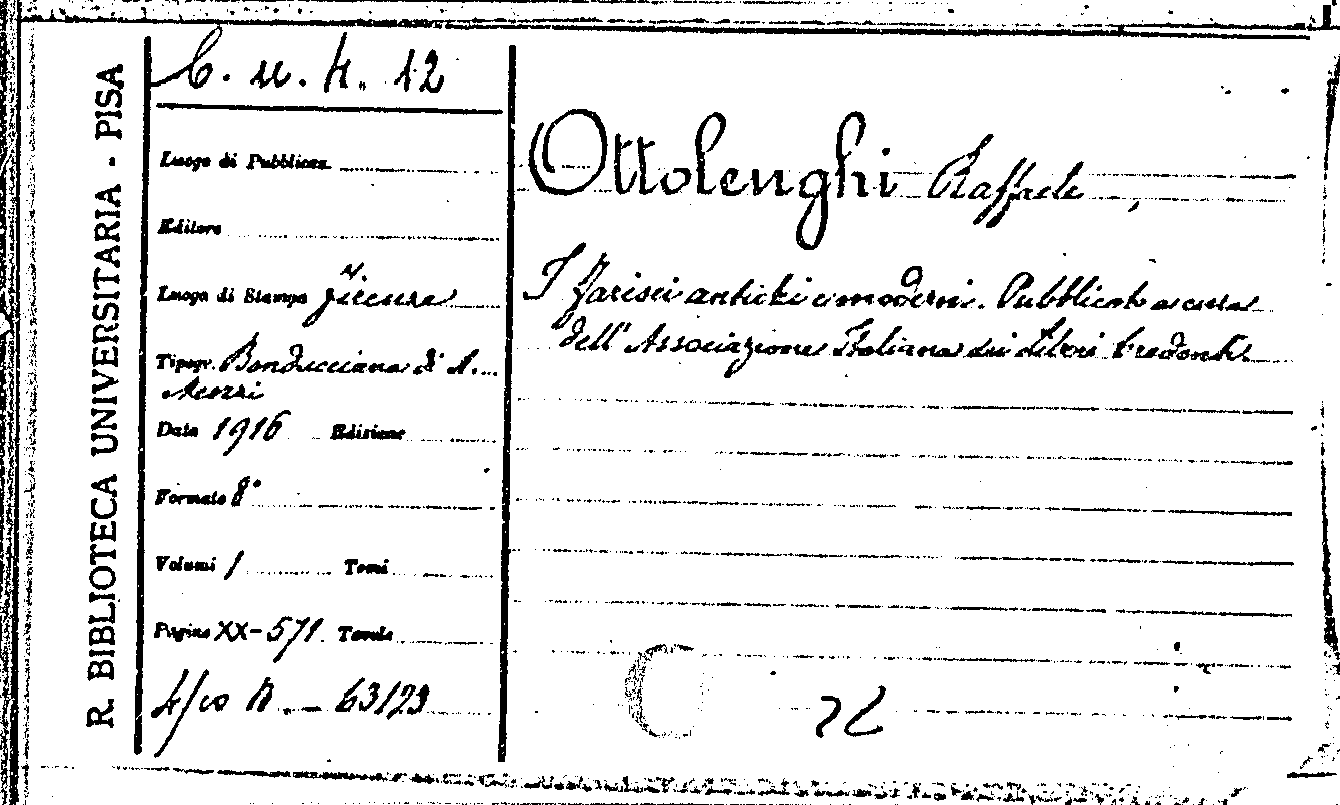 R. BIBLIOTECA UNIVERSITARIA - PISA
C. u. h. 12
Luogo di Pubblicaz.
Editore
Luogo di Stampa Firenze
Tipogr. Bonducciana di A.
Meozzi
Data 1916 Edizione
Formato 8°
Volumi 1 Tomi
Pagine XX-571 Tavole
63123
Ottolenghi Raffaele,
I farisei antichi e moderni. Pubblicato a cura
dell'Associazione Italiana dei Liberi Credenti